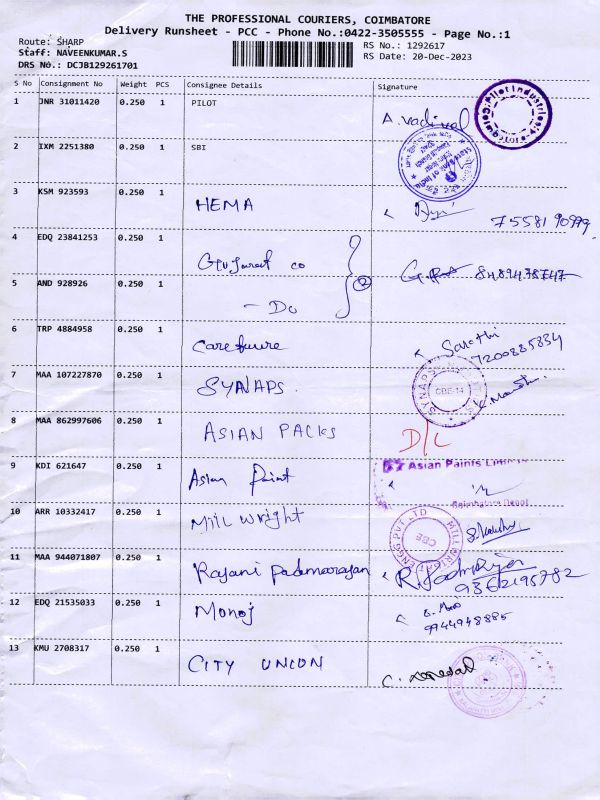 THE PROFESSIONAL COURIERS, COIMBATORE
Delivery Runsheet - PCC - Phone No.:0422-3505555 - Page No.:1
Route: SHARP
Staff: NAVEENKUMAR.S
DRS No.: DCJB129261701
RS No.: 1292617
RS Date: 20-Dec-2023
S No Consignment No Weight PCS Consignee Details Signature
1 JNR 31011420 0.250 1 PILOT A. Vadivel
2 IXM 2251380 0.250 1 SBI
State Bank of India
3 KSM 923593 0.250 1 HEMA
75581 90999
4 EDQ 23841253 0.250 1 Gujarat co 2
8489478747
5 AND 928926 0.250 1 - Do
6 TRP 4884958 0.250 1 Carefuure Sarathi
7200885834
7 MAA 107227870 0.250 1 SYNAPS
SYNAPS
CBE-14
8 MAA 862997606 0.250 1 ASIAN PACKS D/L
9 KDI 621647 0.250 1 Asian Paint
Asian Paints Limited
Coimbatore Depot
10 ARR 10332417 0.250 1 Mill Wright
CBE
11 MAA 944071807 0.250 1 Rajani Padmarajan
9362195782
12 EDQ 21535033 0.250 1 Monoj
9944948885
13 KMU 2708317 0.250 1 CITY UNION